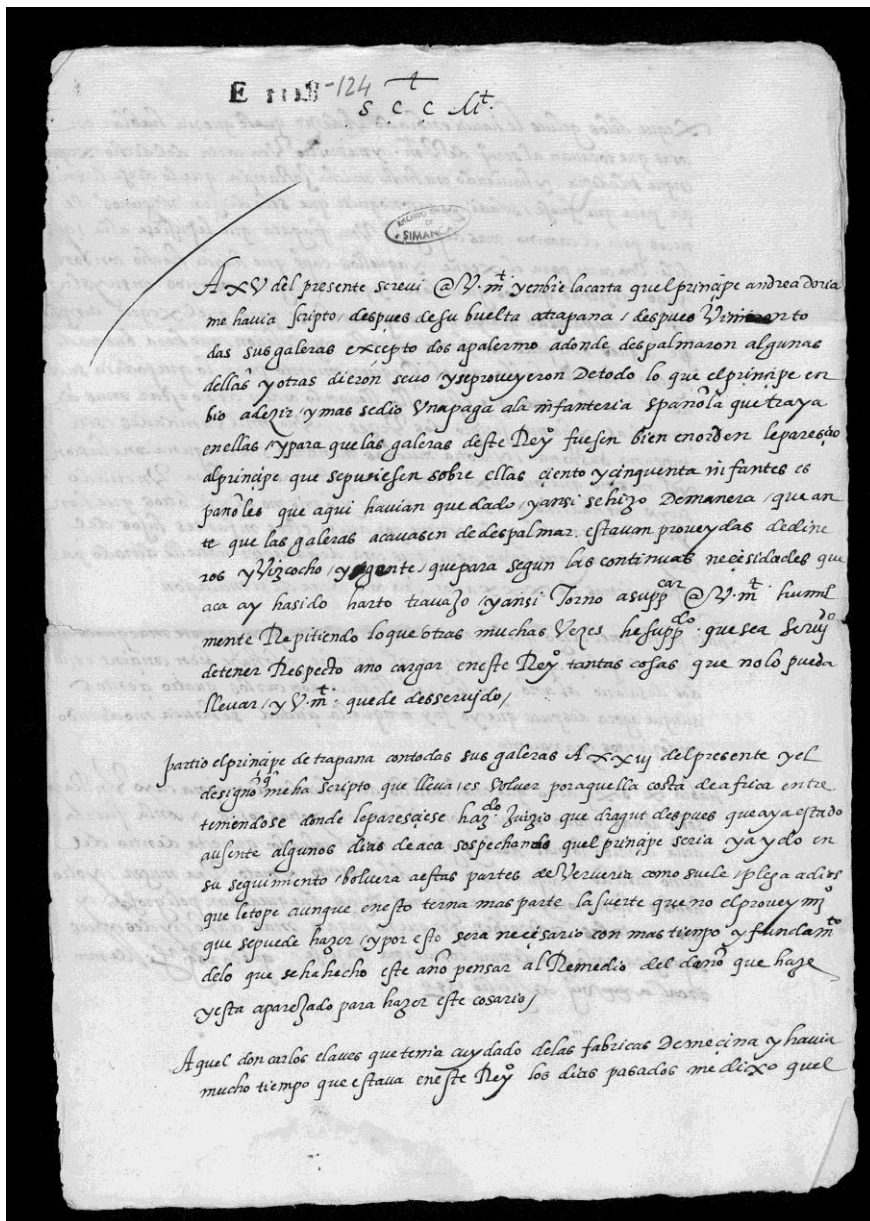 E 1118-124
S C C M.t
ARCHIVO GENERAL DE SIMANCAS
A XV del presente screvi @ V. m.t y enbie la carta quel principe andrea doria
me havia scripto / despues de su buelta a trapana / despues vinieron to
das sus galeras excepto dos a palermo adonde despalmaron algunas
dellas y otras dieron sevo / y se proveyeron De todo lo que el principe en
bio a dezir / y mas se dio Una paga a la infanteria española que traya
en ellas / y para que las galeras deste Rey.o fuesen bien en orden le parescio
al principe que se pusiesen sobre ellas ciento y cinquenta infantes es
pañoles que aqui havian quedado / y ansi se hizo De manera / que an
te que las galeras acavasen de despalmar. estavan proveydas de dine
ros y Vizcocho / y gente / que para segun las continuas necisidades que
aca ay ha sido harto travajo / y ansi Torno a supp.car @ V. m.t humil
mente Repitiendo lo que otras muchas Vezes he supp.do que sea servido
de tener Respecto a no cargar en este Rey.o tantas cosas que no lo pueda
llevar / y V. m.t quede desservido /
partio el principe de trapana con todas sus galeras A XXiij del presente y el
designo q me ha scripto que lleva / es volver por aquella costa de africa entre
teniendose donde le paresciese haz.do Juizio que dragut despues que aya estado
ausente algunos dias de aca sospechando quel principe seria ya ydo en
su seguimento / bolvera a estas partes de Berveria como suele / plega a dios
que le tope aunque en esto terna mas parte la suerte que no el provey m.o
que se puede hazer / y por esto sera necisario con mas tiempo y fundam.to
de lo que se ha hecho este año pensar al Remedio del daño que haze
y esta aparejado para hazer este cosario /
Aquel don carlos claves que tenia cuydado de las fabricas De mecina y havia
mucho tiempo que estava en este Rey.o los dias pasados me dixo quel